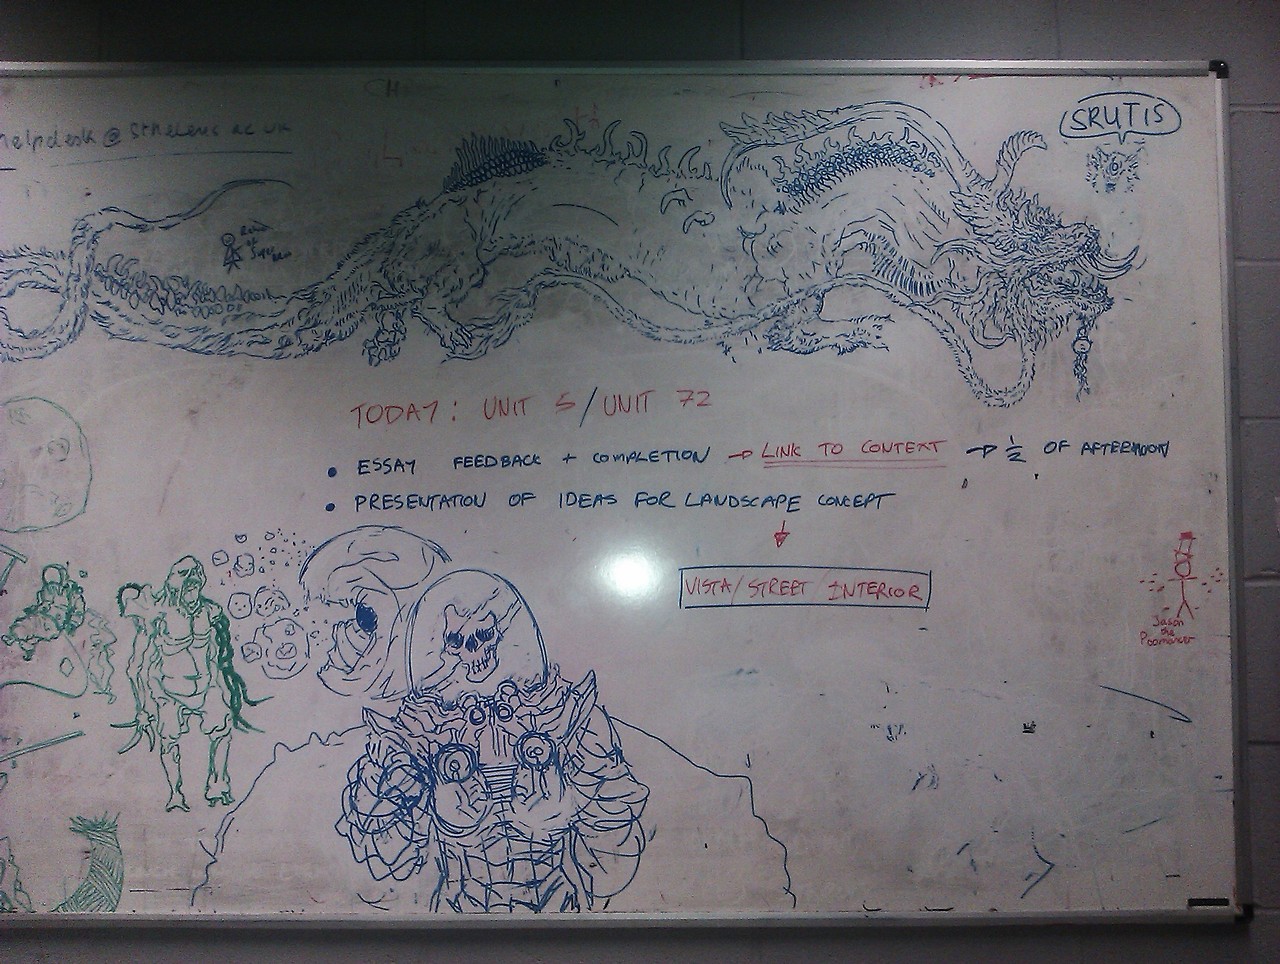 SRUTIS
helpdesk @ sthelens ac uk
TODAY: UNIT 5/UNIT 72
• ESSAY FEEDBACK + COMPLETION → LINK TO CONTEXT → 1/2 OF AFTERNOON
• PRESENTATION OF IDEAS FOR LANDSCAPE CONCEPT
VISTA/ STREET/ INTERIOR
Jason
the
Poomancer